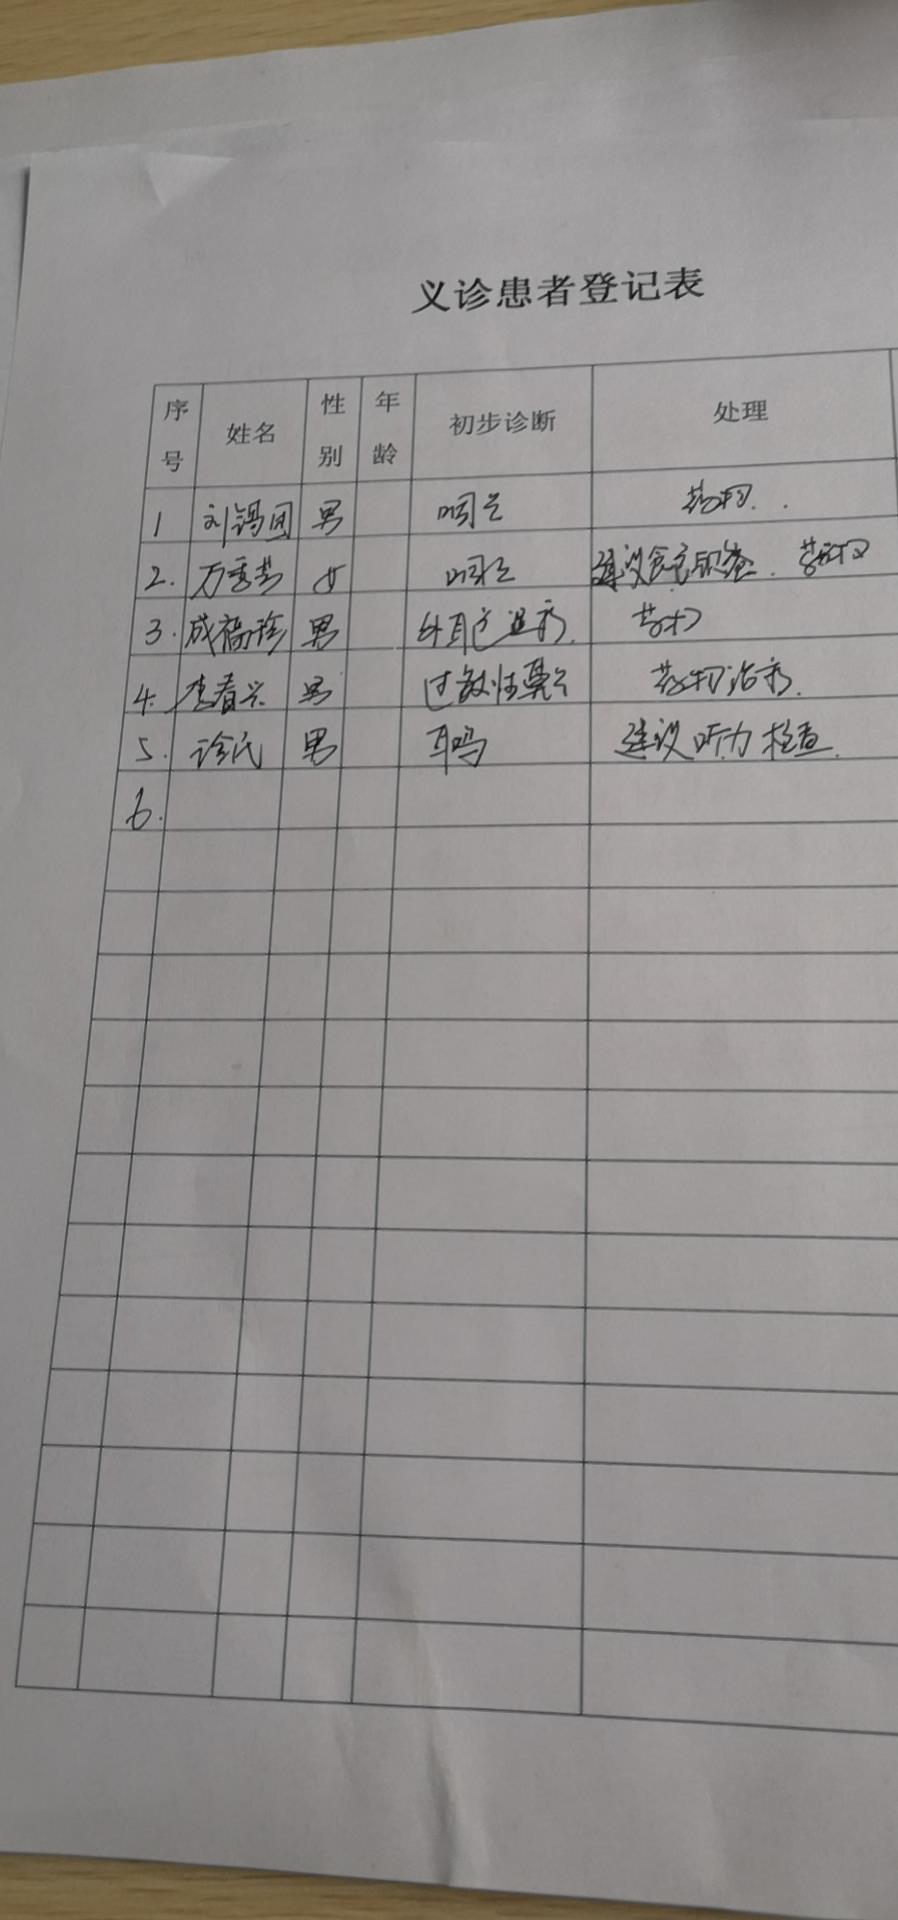 义诊患者登记表
序号 姓名 性别 年龄 初步诊断 处理
1 刘锡团 男 咽炎 药物.
2. 万季芬 女 咽炎 建议 药物
3. 成福珍 男 外耳道 药物
4. 李春兴 男 过敏性鼻炎 药物治疗.
5. 男 耳鸣 建议听力检查.
6.